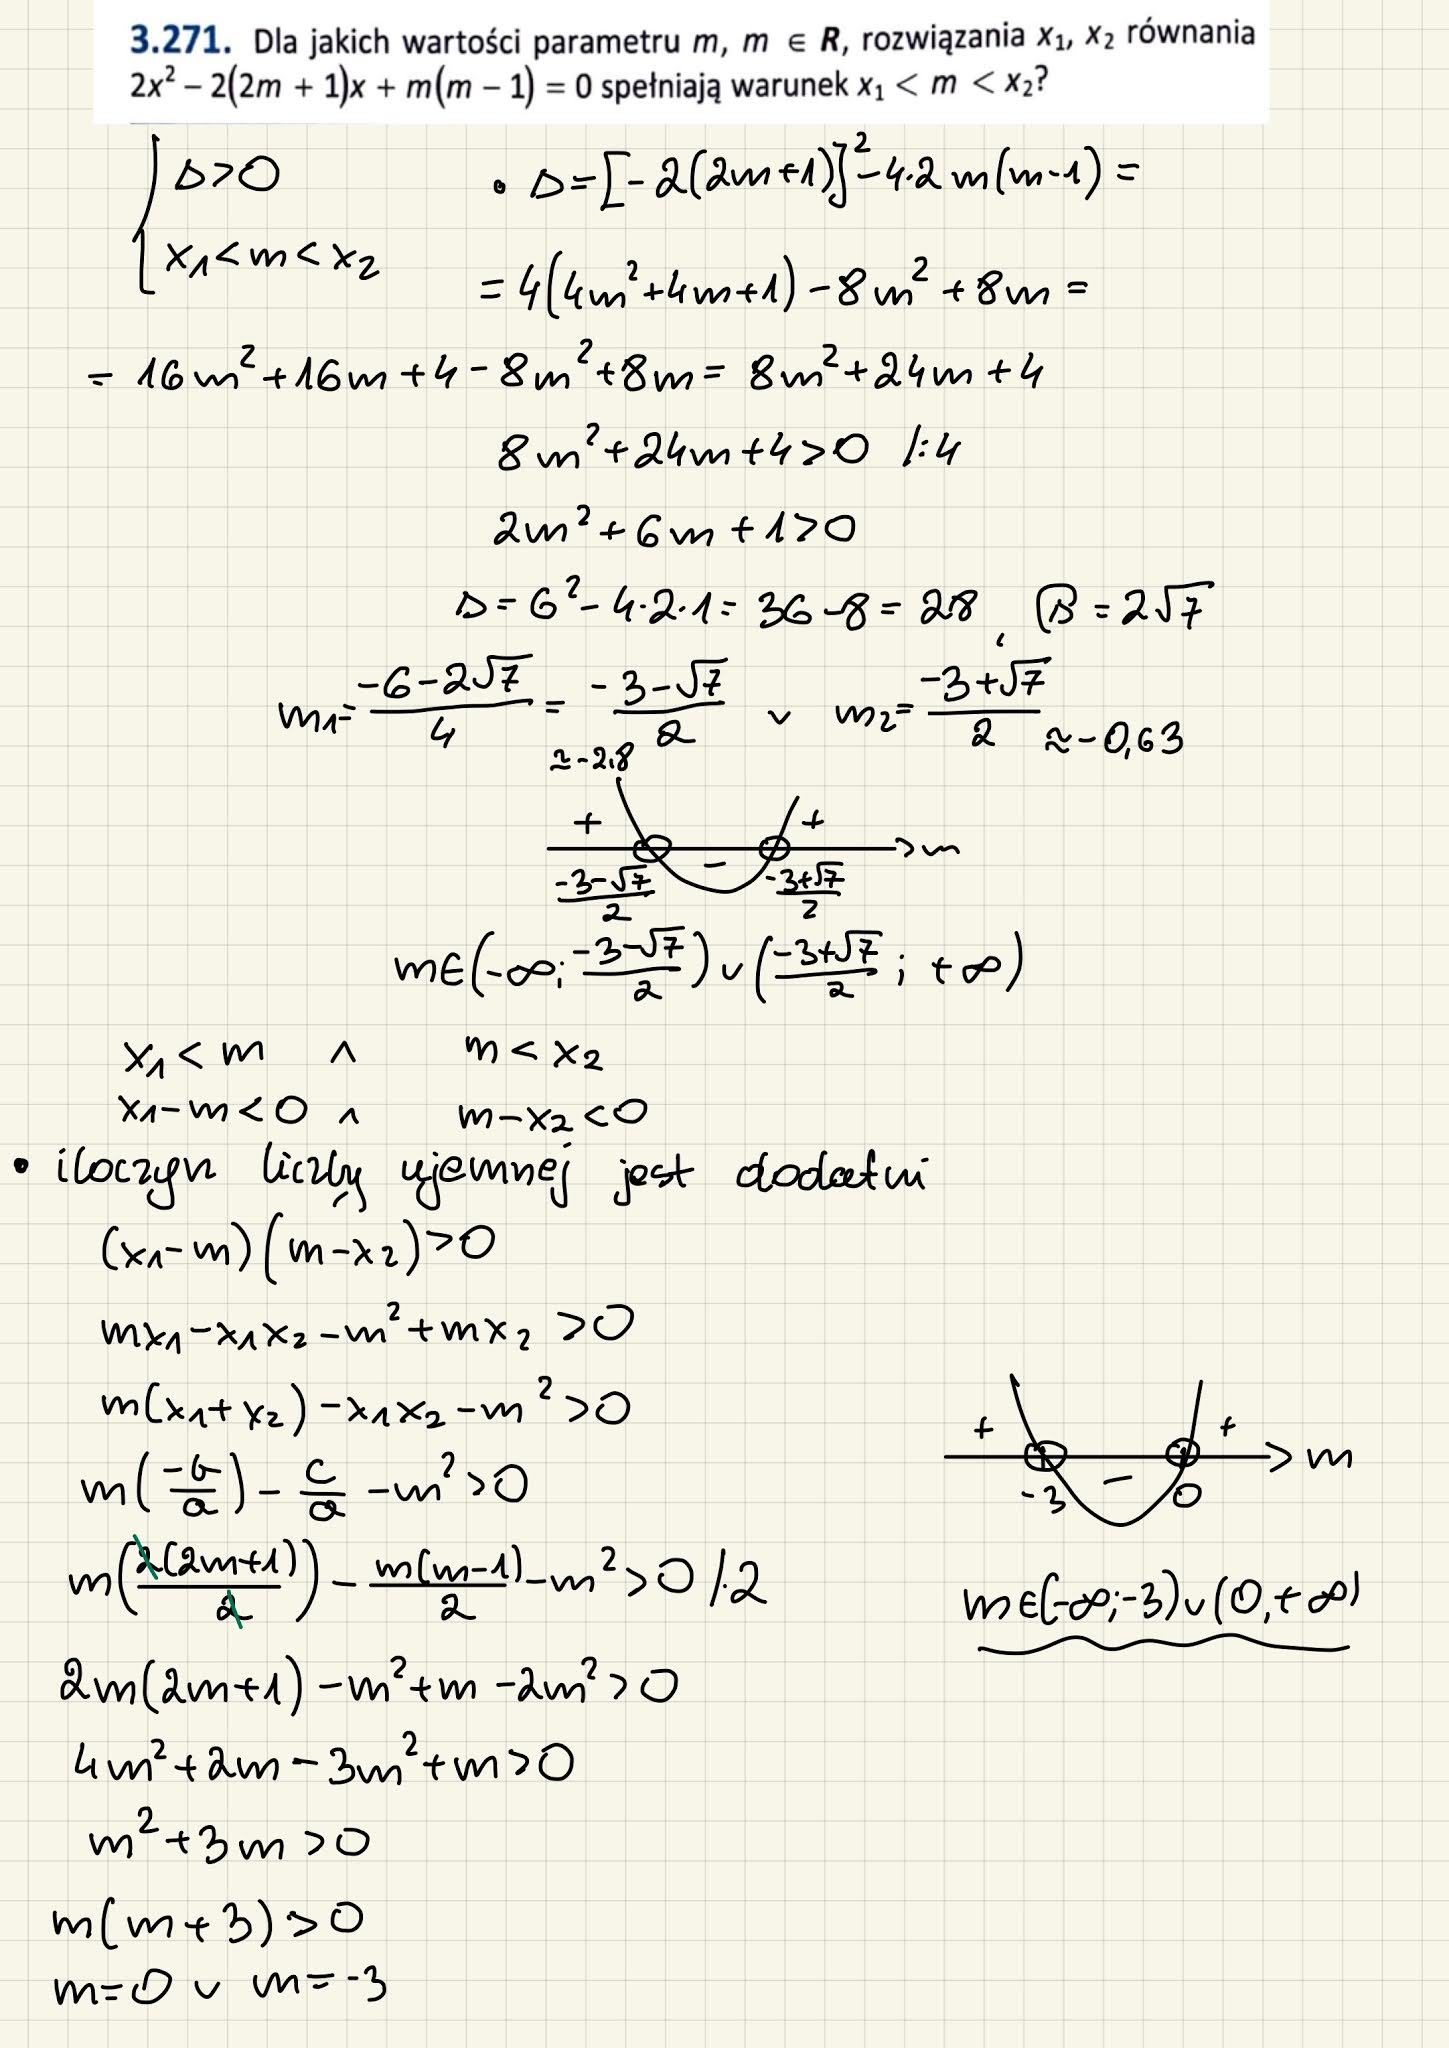 3.271. Dla jakich wartości parametru m, m ∈ R, rozwiązania x₁, x₂ równania
2x² – 2(2m + 1)x + m(m – 1) = 0 spełniają warunek x₁ < m < x₂?
Δ>0
x₁<m<x₂
• Δ=[-2(2m+1)]²-4·2m(m-1)=
=4(4m²+4m+1)-8m²+8m=
=16m²+16m+4-8m²+8m=8m²+24m+4
8m²+24m+4>0 /:4
2m²+6m+1>0
Δ=6²-4·2·1=36-8=28, √Δ=2√7
m₁=(-6-2√7)/4=(-3-√7)/2 ≈-2,8 ∨ m₂=(-3+√7)/2 ≈-0,63
+ - + m
(-3-√7)/2 (-3+√7)/2
m∈(-∞;(-3-√7)/2)∪((-3+√7)/2;+∞)
x₁<m ∧ m<x₂
x₁-m<0 ∧ m-x₂<0
• iloczyn liczby ujemnej jest dodatni
(x₁-m)(m-x₂)>0
mx₁-x₁x₂-m²+mx₂>0
m(x₁+x₂)-x₁x₂-m²>0
m(-b/a)-c/a-m²>0
m(2(2m+1)/2)-m(m-1)/2-m²>0 /·2
2m(2m+1)-m²+m-2m²>0
4m²+2m-3m²+m>0
m²+3m>0
m(m+3)>0
m=0 ∨ m=-3
+ - + m
-3 0
m∈(-∞;-3)∪(0,+∞)